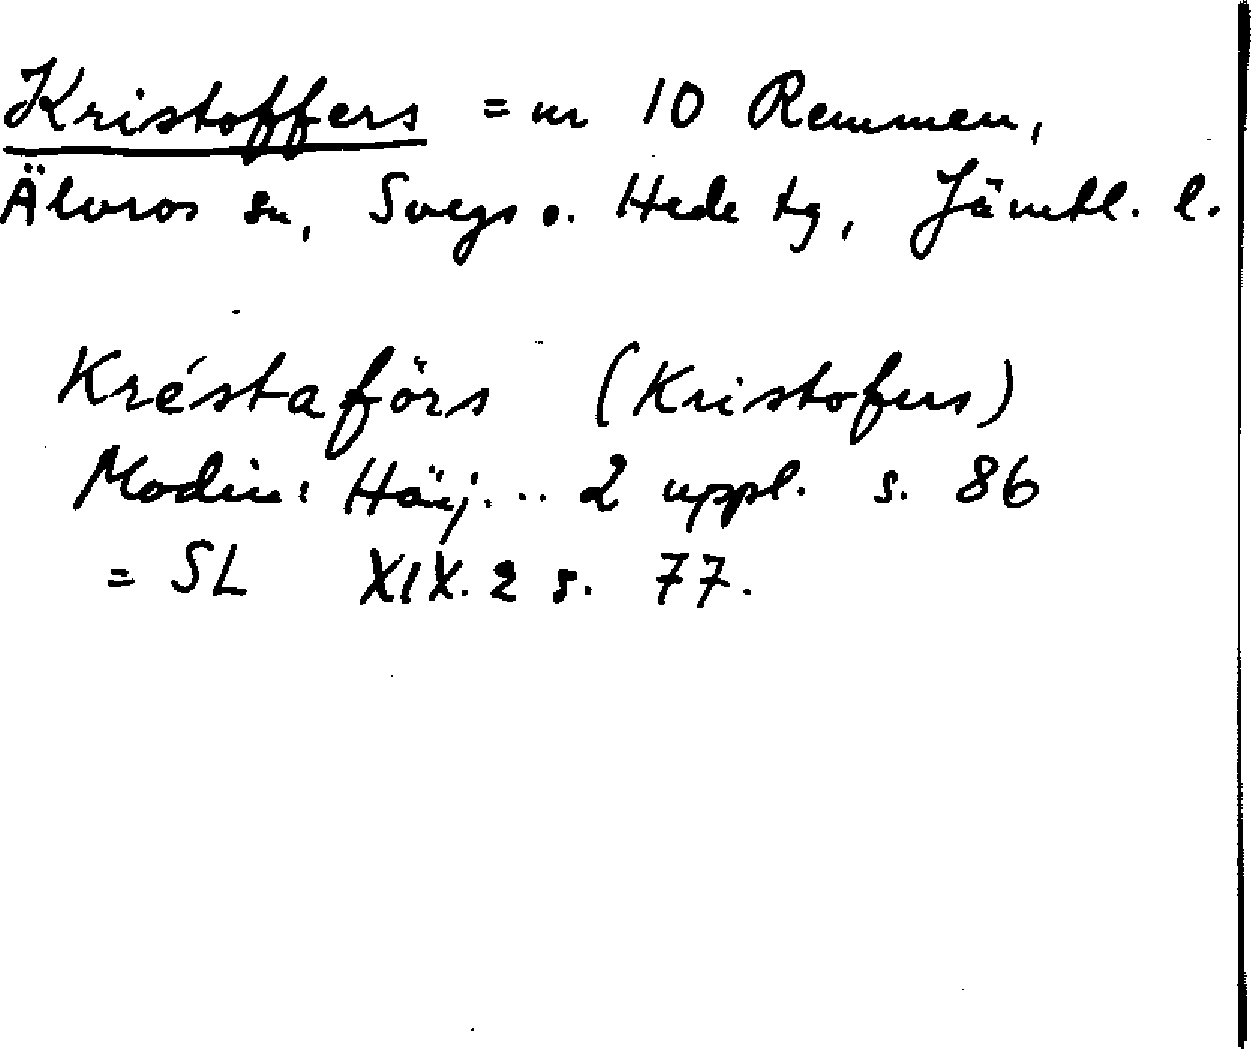 Kristoffers = nr 10 Remmen,
Älvros sn, Svegs o. Hede tg, Jämtl. l.
Kréstaförs (Kristofers)
Modin: Härj... 2 uppl. s. 86
= SL XIX. 2 s. 77.